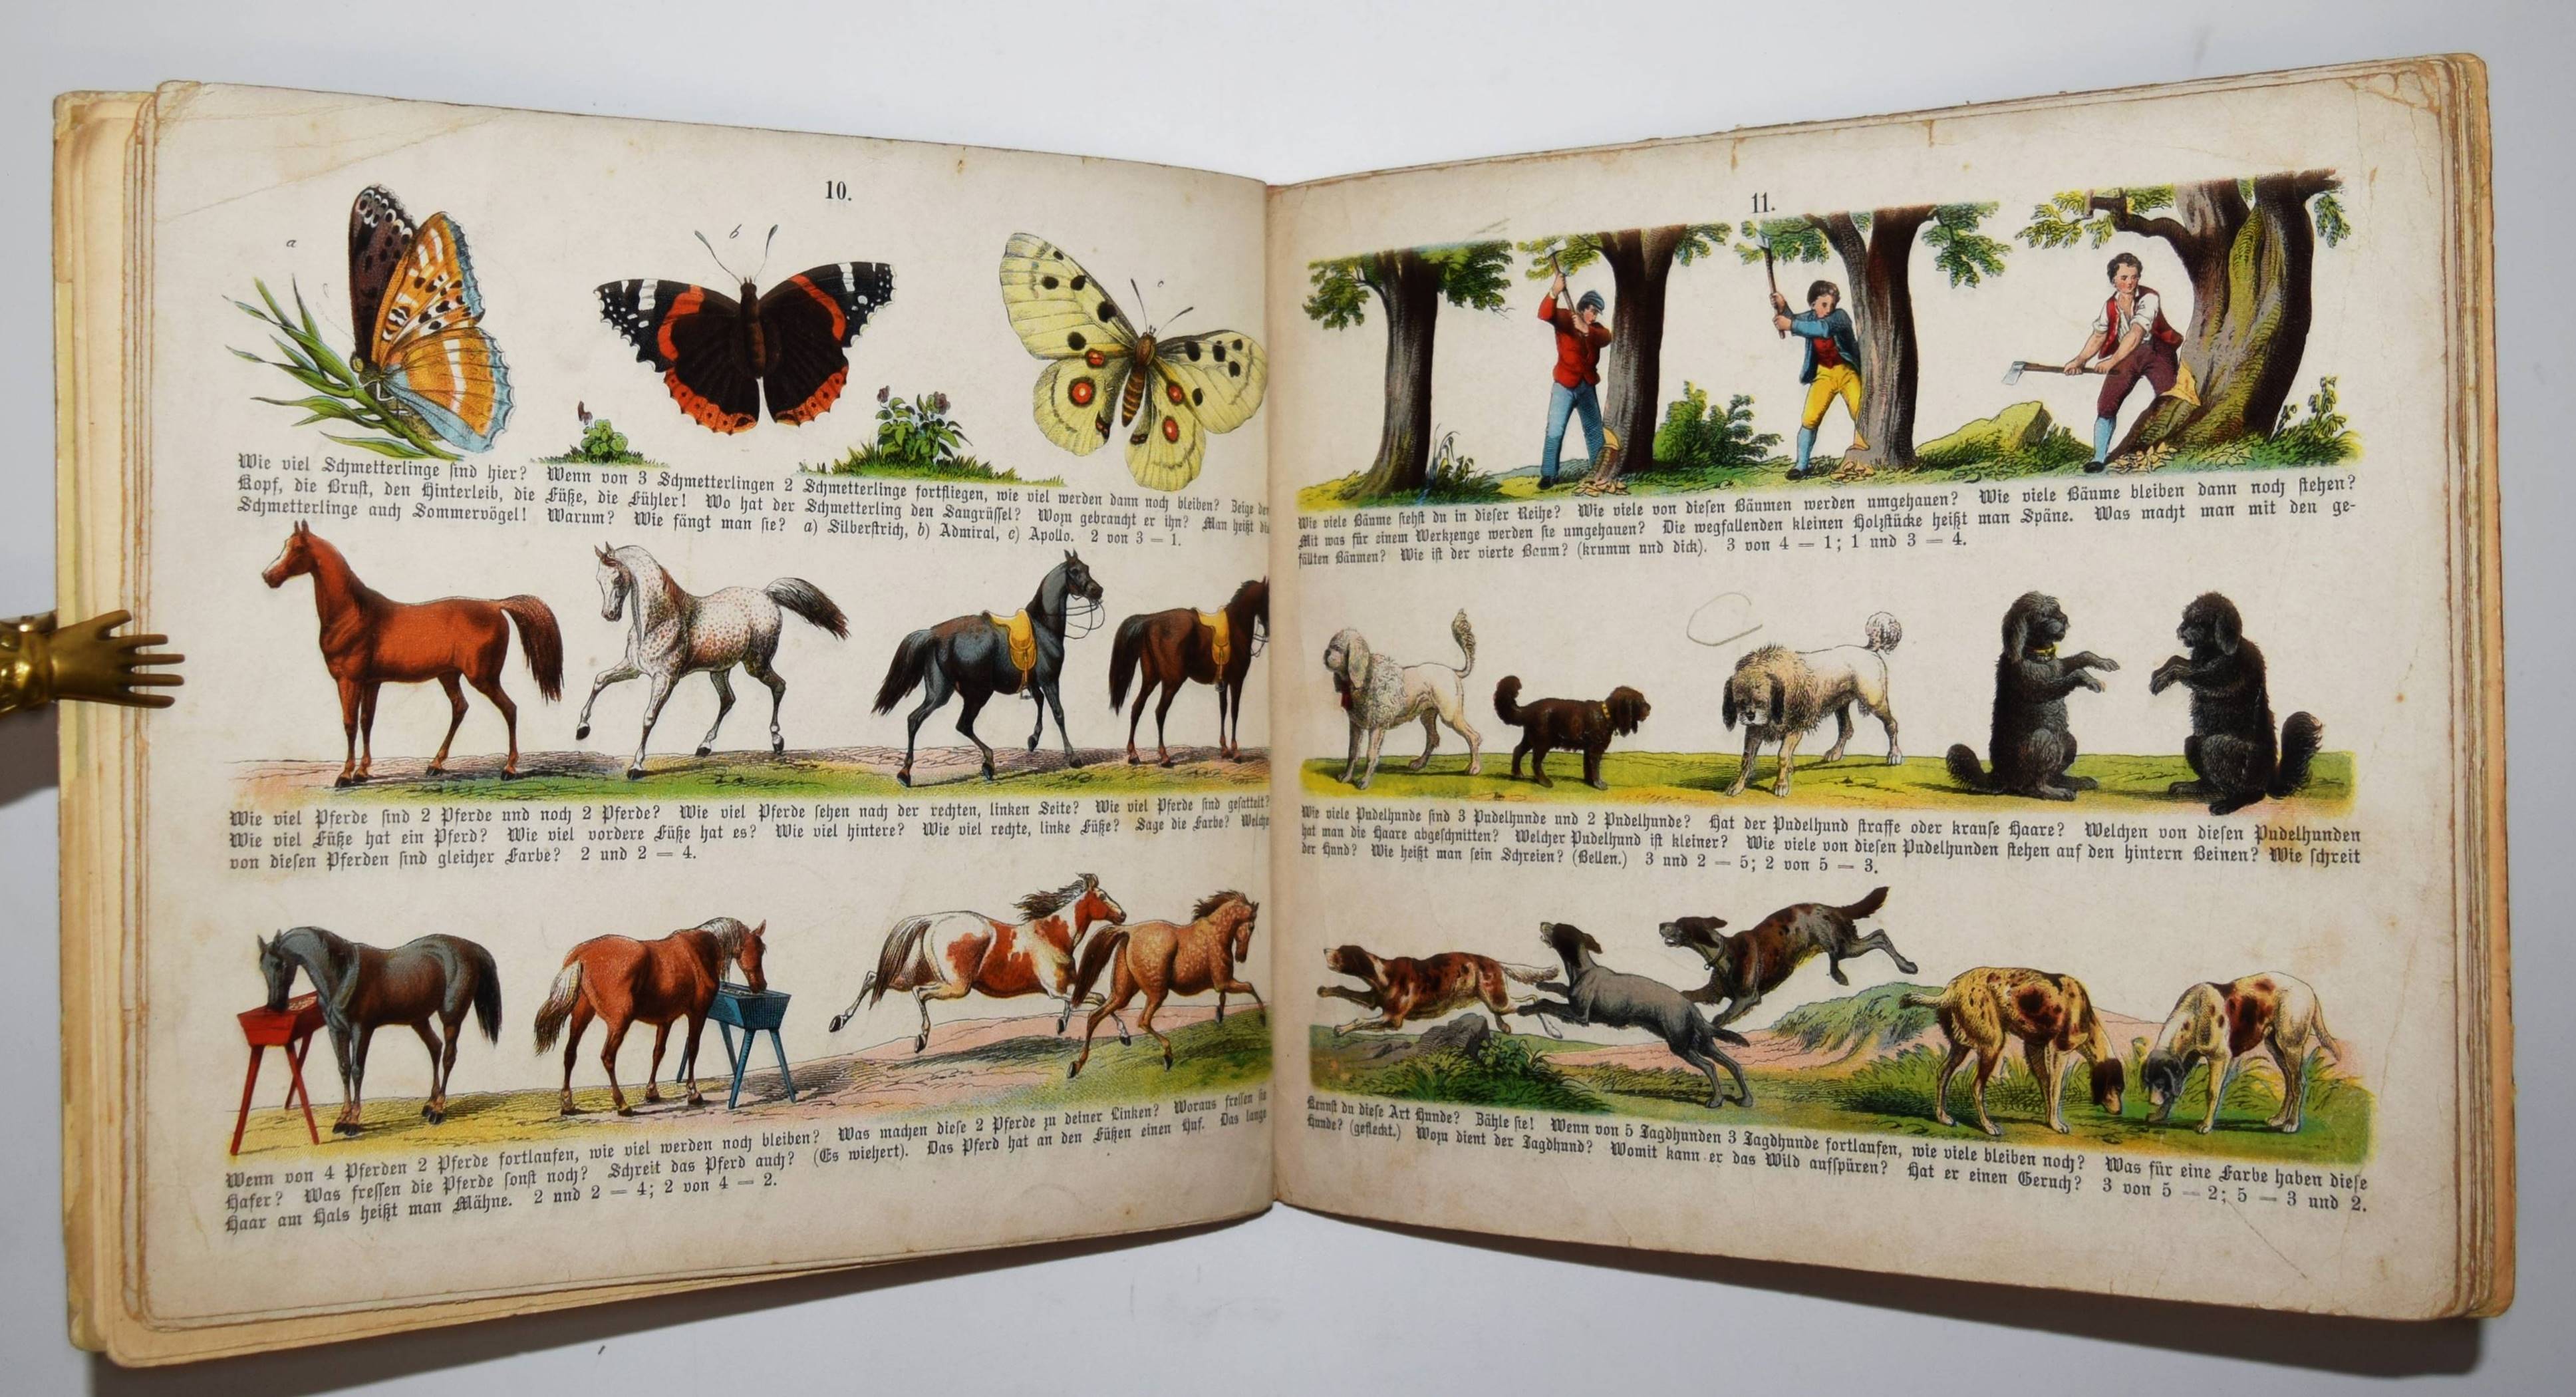 10.
a
b
c
Wie viel Schmetterlinge ſind hier? Wenn von 3 Schmetterlingen 2 Schmetterlinge fortfliegen, wie viel werden dann noch bleiben? Zeige den
Kopf, die Bruſt, den Hinterleib, die Füße, die Fühler! Wo hat der Schmetterling den Saugrüſſel? Wozu gebraucht er ihn? Man heißt die
Schmetterlinge auch Sommervögel! Warum? Wie fängt man ſie? a) Silberſtrich, b) Admiral, c) Apollo. 2 von 3 — 1.
Wie viel Pferde ſind 2 Pferde und noch 2 Pferde? Wie viel Pferde ſehen nach der rechten, linken Seite? Wie viel Pferde ſind geſattelt?
Wie viel Füße hat ein Pferd? Wie viel vordere Füße hat es? Wie viel hintere? Wie viel rechte, linke Füße? Sage die Farbe? Welche
von dieſen Pferden ſind gleicher Farbe? 2 und 2 = 4.
Wenn von 4 Pferden 2 Pferde fortlaufen, wie viel werden noch bleiben? Was machen dieſe 2 Pferde zu deiner Linken? Woraus freſſen ſie
Hafer? Was freſſen die Pferde ſonſt noch? Schreit das Pferd auch? (Es wiehert). Das Pferd hat an den Füßen einen Huf. Das lange
Haar am Hals heißt man Mähne. 2 und 2 = 4; 2 von 4 = 2.
11.
Wie viele Bäume ſiehſt du in dieſer Reihe? Wie viele von dieſen Bäumen werden umgehauen? Wie viele Bäume bleiben dann noch ſtehen?
Mit was für einem Werkzeuge werden ſie umgehauen? Die wegfallenden kleinen Holzſtücke heißt man Späne. Was macht man mit den ge-
fällten Bäumen? Wie iſt der vierte Baum? (krumm und dick). 3 von 4 = 1; 1 und 3 = 4.
Wie viele Pudelhunde ſind 3 Pudelhunde und 2 Pudelhunde? Hat der Pudelhund ſtraffe oder krauſe Haare? Welchen von dieſen Pudelhunden
hat man die Haare abgeſchnitten? Welcher Pudelhund iſt kleiner? Wie viele von dieſen Pudelhunden ſtehen auf den hintern Beinen? Wie ſchreit
der Hund? Wie heißt man ſein Schreien? (Bellen.) 3 und 2 = 5; 2 von 5 = 3.
Kennſt du dieſe Art Hunde? Zähle ſie! Wenn von 5 Jagdhunden 3 Jagdhunde fortlaufen, wie viele bleiben noch? Was für eine Farbe haben dieſe
Hunde? (gefleckt.) Wozu dient der Jagdhund? Womit kann er das Wild aufſpüren? Hat er einen Geruch? 3 von 5 = 2; 5 = 3 und 2.